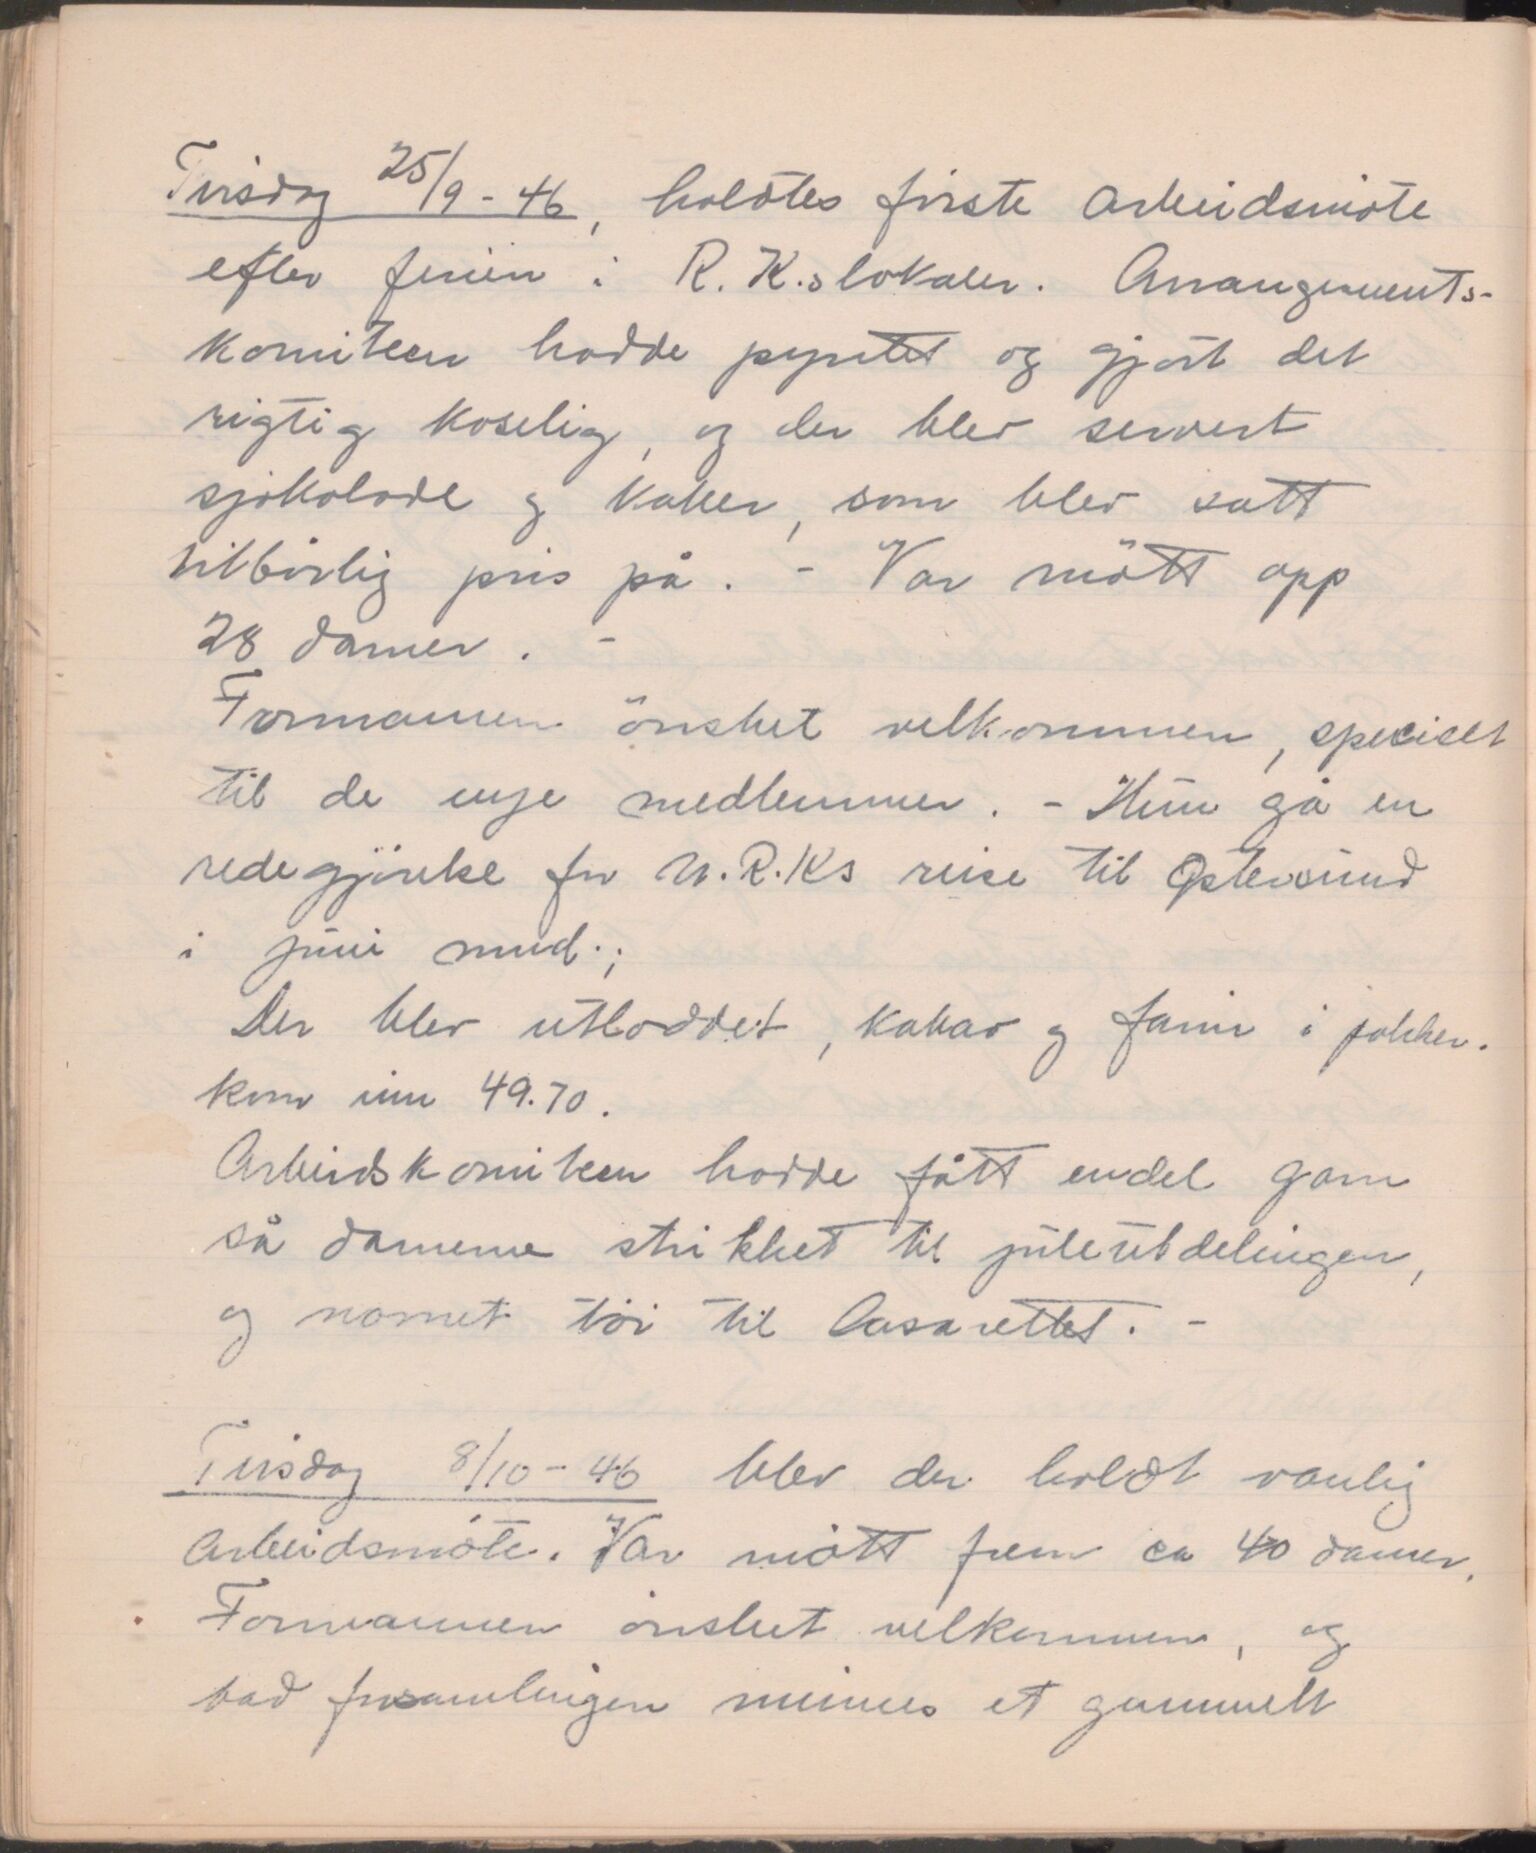 Tirsdag 25/9-46, holdtes första arbeidsmöte
efter ferien i R.K.s lokaler. Arrangements-
komiteen hadde pyntet og gjort det
rigtig koselig, og der blev servert
sjokolade og kaker, som blev satt
tilbörlig pris på. - Var mött opp
28 damer. -
Formannen önsket velkommen, specielt
til de nye medlemmer. - Hun ga en
redegjörelse for N.R.Ks reise til Östersund
i juni mnd.;
Der blev utloddet, kakao og farin i pokker.
kom inn 49.70.
Arbeidskomiteen hadde fått endel garn
så damene strikket til juleutdelingen,
og narnet töi til Lasarettet. -
Tirsdag 8/10-46 blev der holdt vanlig
arbeidsmöte. Var mött frem ca 40 damer.
Formannen önsket velkommen, og
bad forsamlingen minnes et gammelt